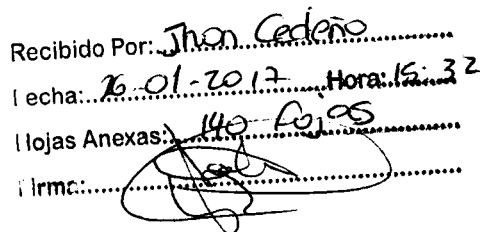 Recibido Por: Jhon Cedeño
Fecha: 26-01-2017 Hora: 15:32
Hojas Anexas: 140 Fojas
Firma: